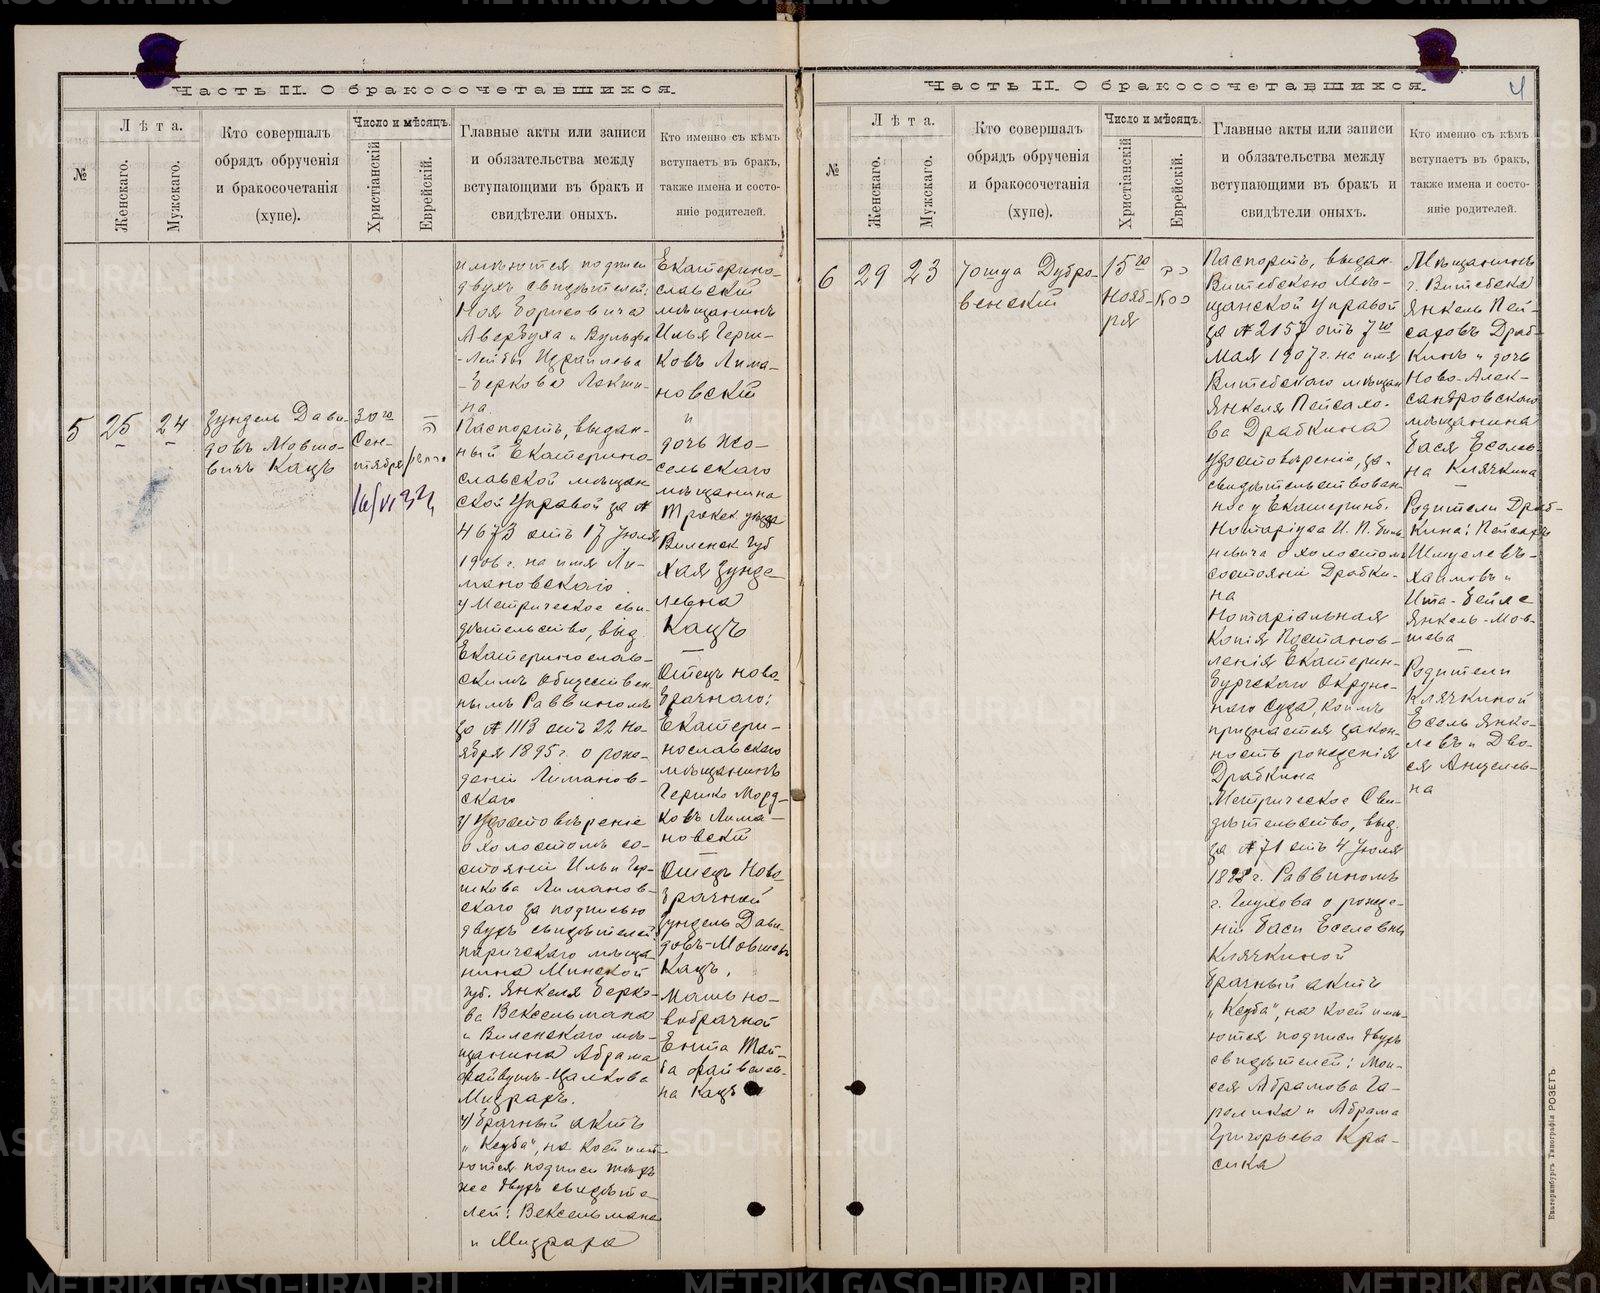 Часть II. О бракосочетавшихся.
№
Лѣта.
Женскаго.
Мужскаго.
Кто совершалъ
обрядъ обрученія
и бракосочетанія
(хупе).
Число и мѣсяцъ.
Христіанскій
Еврейскій.
Главные акты или записи
и обязательства между
вступающими въ бракъ и
свидѣтели оныхъ.
Кто именно съ кѣмъ
вступаетъ въ бракъ,
также имена и состо-
яніе родителей.
имѣются подписи
двухъ свидѣтелей:
Ноя Борисовича
Авербуха и Вульфа
-Лейбы Израилева
-Беркова Лакши-
на.
5
25
24
Зундель Дави-
довъ Мовшо-
вичъ Кацъ
30го
Сен-
тября
Паспортъ, выдан-
ный Екатерино-
славской мѣщан
ской Управой за №
4673 отъ 17 Іюля
1906 г. на имя Ли-
мановскаго
2/ Метрическое сви-
дѣтельство, выд.
Екатеринослав-
скимъ Обществен-
нымъ Раввиномъ
за № 1113 отъ 22 но-
ября 1895 г. о рож-
деніи Лиманов-
скаго
3/ Удостовѣреніе
о холостомъ со-
стояніи Ильи Гер-
шкова Лиманов-
скаго за подписью
двухъ свидѣтелей:
паричскаго мѣща-
нина Минской
губ. Янкеля Берко-
ва Вексельмана
и Виленскаго мѣ-
щанина Абрама
Файвушъ-Цалкова
4/ Брачный актъ
„Ксуба", на коей имѣ-
ются подписи тѣхъ
же двухъ свидѣте-
лей: Вексельмана
Екатерино-
славскій
мѣщанинъ
Илья Герш-
ковъ Лима-
новскій
и
дочь Жо-
сельскаго
мѣщанина
Трокск уѣзда
Виленск губ
Хая Зунде-
левна
Кацъ
—
Отецъ ново-
брачнаго:
Екатери-
нославскій
мѣщанинъ
Гершко Морд-
ковъ Лима-
новскій
—
Отецъ Ново-
брачной
Зундель Дави-
довъ-Мовшовъ
Кацъ.
Мать но-
вобрачной
Ента Тай-
ба Файвелев-
на Кацъ
Часть II. О бракосочетавшихся.
4
№
Лѣта.
Женскаго.
Мужскаго.
Кто совершалъ
обрядъ обрученія
и бракосочетанія
(хупе).
Число и мѣсяцъ.
Христіанскій
Еврейскій.
Главные акты или записи
и обязательства между
вступающими въ бракъ и
свидѣтели оныхъ.
Кто именно съ кѣмъ
вступаетъ въ бракъ,
также имена и состо-
яніе родителей.
6
29
23
Іошуа Дубро-
венскій
15го
Нояб-
ря
Паспортъ, выдан.
Витебскою Мѣ-
щанской Управой
за № 2157 отъ 7го
мая 1907 г. на имя
Витебскаго мѣщан
Янкеля Пейсахо-
ва Драбкина
Удостовѣреніе, за-
свидѣтельствован-
ное у Екатеринб.
Нотаріуса И. П.
о холостомъ
состояніи Драбки-
на
Нотаріальная
копія Постанов-
ленія Екатерин-
бургскаго Окруж-
наго Суда, коимъ
признается закон-
ность рожденія
Драбкина
Метрическое Сви-
дѣтельство, выд.
за № 71 отъ 4 Іюля
1898 г. Раввиномъ
г. Глухова о рожде-
ніи Баси Еселевны
Клячкиной
Брачный актъ
„Ксуба", на коей имѣ-
ются подписи двухъ
свидѣтелей: Мои-
сея Абрамова Га-
релика и Абрама
Григорьева Кра-
сика
Мѣщанинъ
г. Витебска
Янкель Пей-
саховъ Драб-
кинъ и дочь
Ново-Алек-
сандровскаго
мѣщанина
Бася Есолев-
на Клячкина
—
Родители Драб-
кина: Пейсахъ
Шмуелевъ-
Хаимовъ и
Ита-Бейле
Янкель-Мов-
шева
—
Родители
Клячкиной
Есель Янко-
левъ и Дво-
ся Анцелев-
на
Екатеринбургъ Типографія РОЗЕТЪ
METRIKI.GASO-URAL.RU